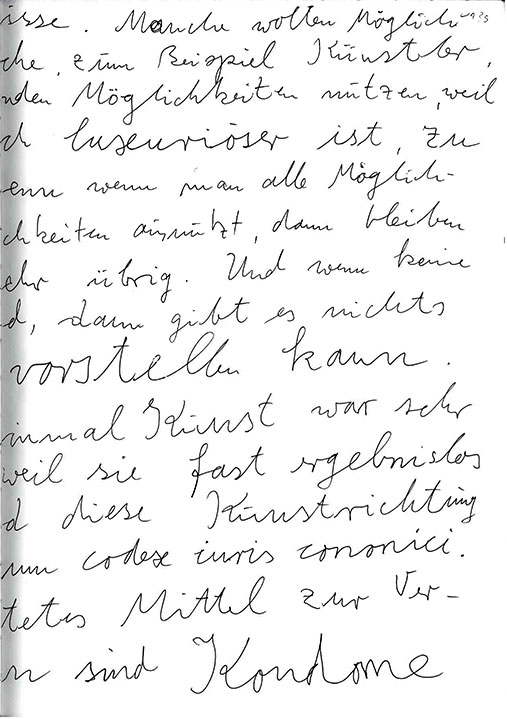 isse. Manche wollen Möglich-
che, zum Beispiel Künstler,
nden Möglichkeiten nützen, weil
ch luxeuriöser ist, zu
enn wenn man alle Möglich-
chkeiten ausnützt, dann bleiben
ehr übrig. Und wenn keine
d, dann gibt es nichts
vorstellen kann.
inmal Kunst war sehr
weil sie fast ergebnislos
d diese Kunstrichtung
um codex iuris cononici.
tetes Mittel zur Ver-
n sind Kondome